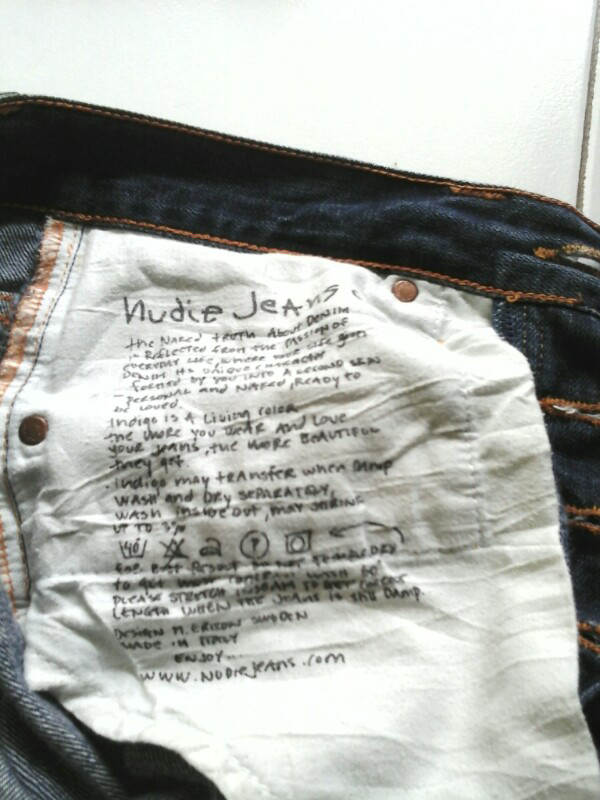 Nudie Jeans
the NAKED truth About DENIM
is Reflected from the PASSION OF
EVERYDAY LIFE, WHERE YOUR LIFE gives
DENIM its unique CHARACTER
formed by YOU INTO A SECOND SKIN
PERSONAL and NAKED, READY TO
BE LOVED.
Indigo is A Living COLOR
the more you WEAR AND LOVE
your JEANS, the MORE BEAUTIFUL
they get
Indigo may transfer when Damp
WASH and DRY SEPARATELY,
WASH inside out, MAY SHRINK
UP TO 3%
40 P
FOR BEST Result DO NOT TUMBLE DRY
to get
PLEASE STRETCH INSEAM TO GET
LENGTH WHEN THE JEANS is still Damp.
DESIGN M. ERIXON SWEDEN
MADE IN ITALY
ENJOY...
WWW.NUDIEJEANS.COM